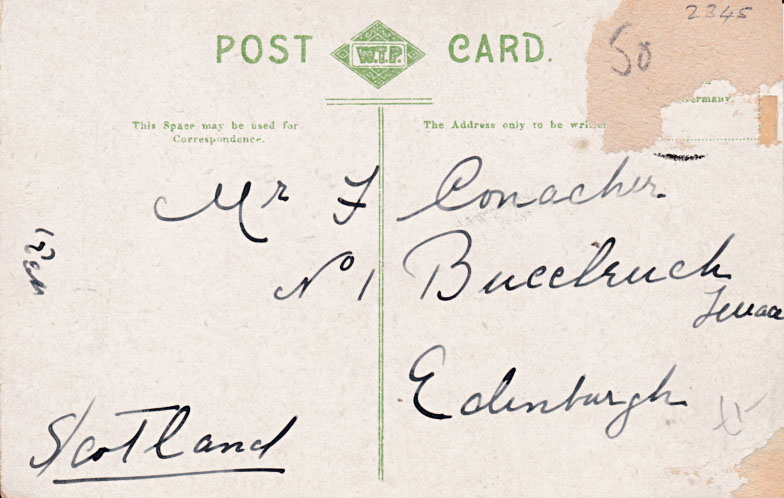 2345
50
POST W.T.P. CARD.
ermany.
This Space may be used for
Correspondence.
The Address only to be
Mr F Conacher
No 1 Buccleuch
Terrace
Edinburgh
Scotland